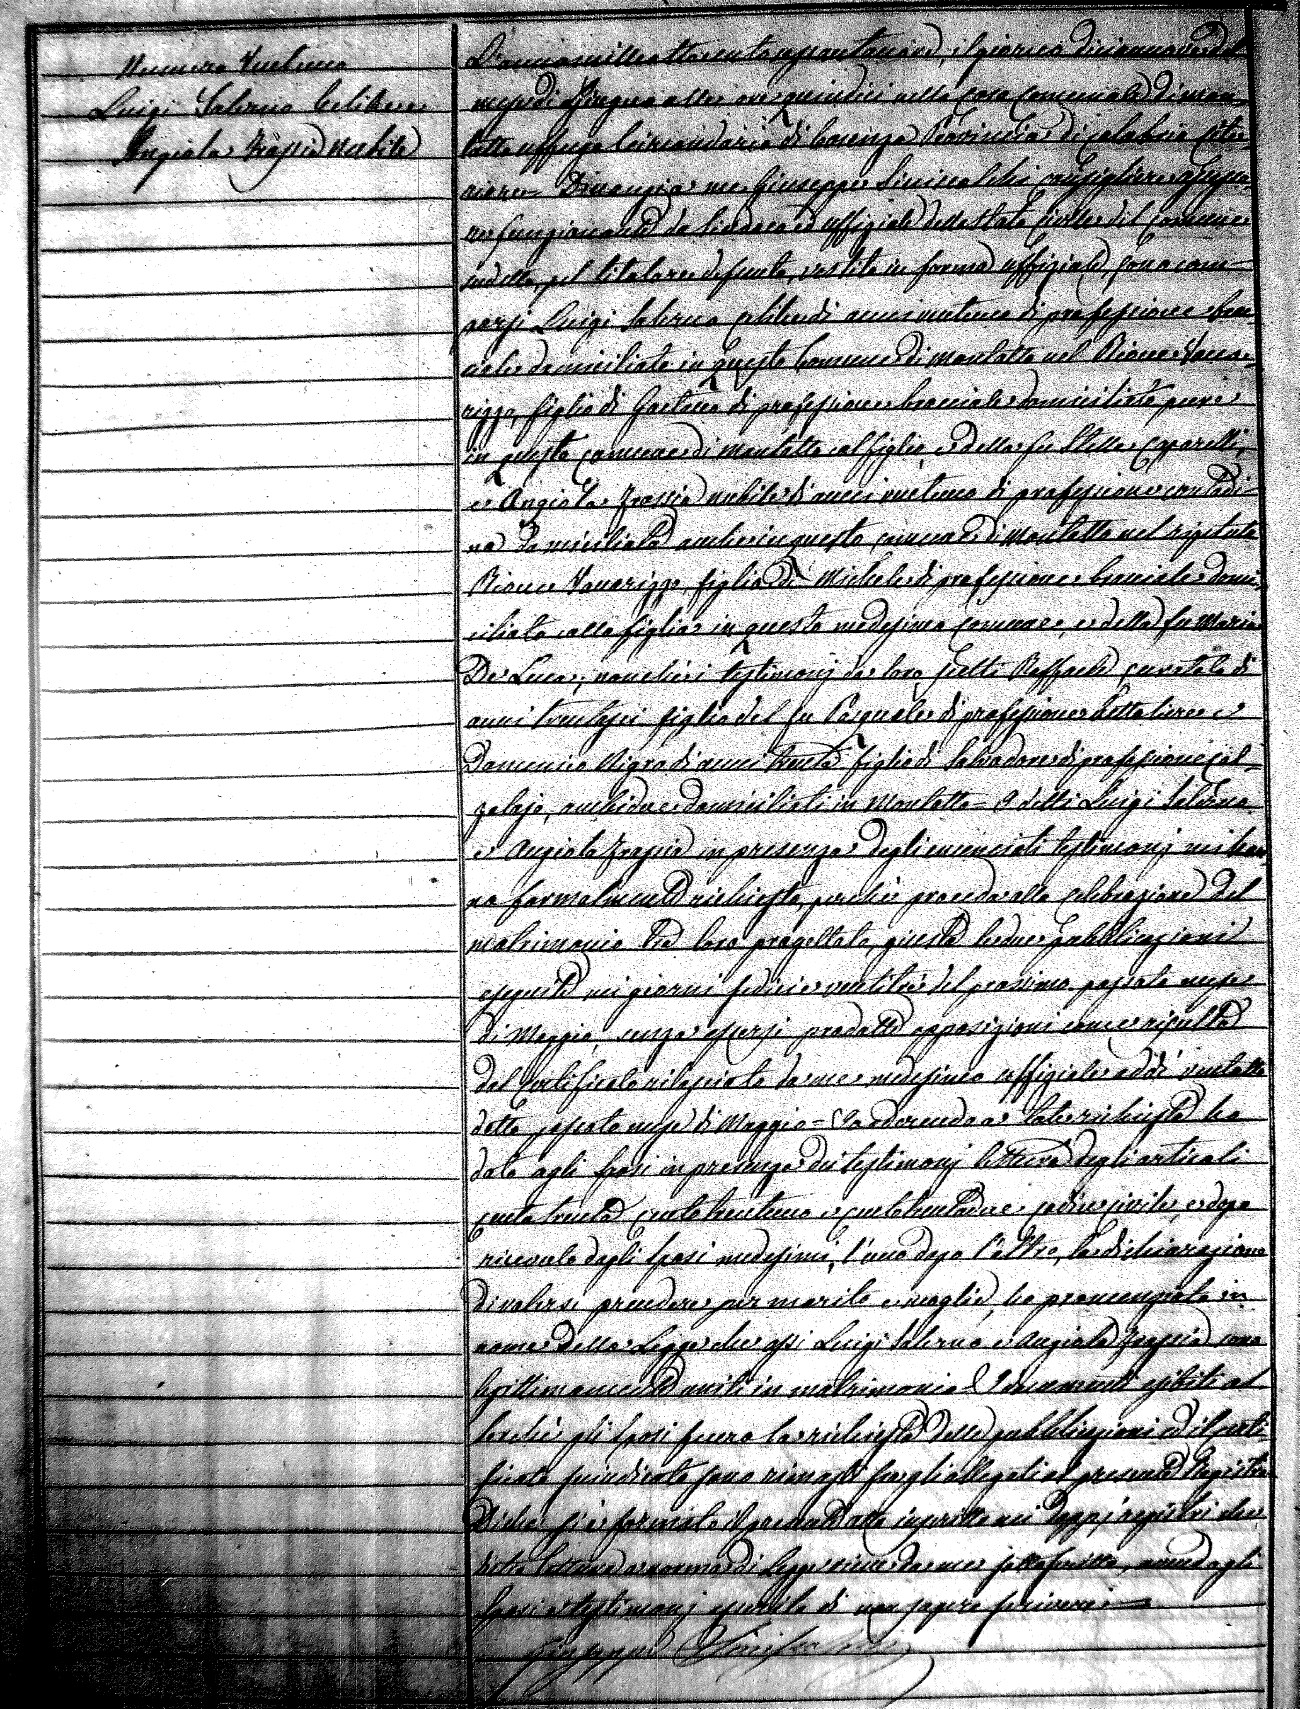 Numero Ventuno
Luigi Salerno Celibe e
Angiola Frassia nubile
L'anno milleottocentosessantanove, il giorno diciannove del
mese di Giugno alle ore quindici nella Casa Comunale di Mon-
talto Uffugo Circondario di Cosenza Provincia di Calabria Cite-
riore = Dinanzi a me Giuseppe Siniscalchi consigliere
funzionante da Sindaco ed uffiziale dello stato civile del Comune
sudetto, pel titolare defunto, vestito in forma uffiziale, sono com-
parsi Luigi Salerno celibe di anni ventuno di professione brac-
ciale domiciliato in questo Comune di Montalto nel Rione Vacca-
rizzo, figlio di Gaetano di professione bracciale domiciliato pure
in questo comune di Montalto col figlio, e della fu Stella Caparelli,
e Angiola Frassia nubile di anni ventuno di professione contadi-
na domiciliata anche in questo comune di Montalto nel ripetuto
Rione Vaccarizzo, figlia di Michele di professione bracciale domi-
ciliato colla figlia in questo medesimo comune, e della fu Maria
De Luca, nonché i testimonj da loro scelti Raffaele di
anni trentasei figlio del fu Pasquale di professione bottaliere e
Domenico Nigro di anni trenta figlio di Salvadore di professione cal-
zolajo, ambidue domiciliati in Montalto = I detti Luigi Salerno
e Angiola Frassia in presenza degli enunciati testimonj mi han-
no formalmente richiesto, perché proceda alla celebrazione del
matrimonio tra loro progettato, giusta le due pubblicazioni
eseguite nei giorni sedici e ventitré del prossimo passato mese
di Maggio, senza essersi prodotte opposizioni come risulta
dal certificato rilasciato da me medesimo uffiziale addì ventotto
detto passato mese di Maggio = Io aderendo a tale richiesta ho
dato agli sposi in presenza dei testimonj lettura degli articoli
centotrenta centotrentuno e centotrentadue codice civile, e dopo
ricevuto dagli sposi medesimi, l'uno dopo l'altro, la dichiarazione
di volersi prendere per marito e moglie, ho pronunziato in
nome della Legge che essi Luigi Salerno e Angiola Frassia sono
legittimamente uniti in matrimonio = I documenti esibiti al-
lorché gli sposi fecero la richiesta delle pubblicazioni ed il certi-
ficato sono rimasti fra gli allegati al presente Registro
Di che si è formato il presente atto inscritto nei doppi registri che
letto a norma di Legge viene da me sottoscritto, avendo gli
sposi e testimonj asserito di non sapere scrivere =
Giuseppe Siniscalchi